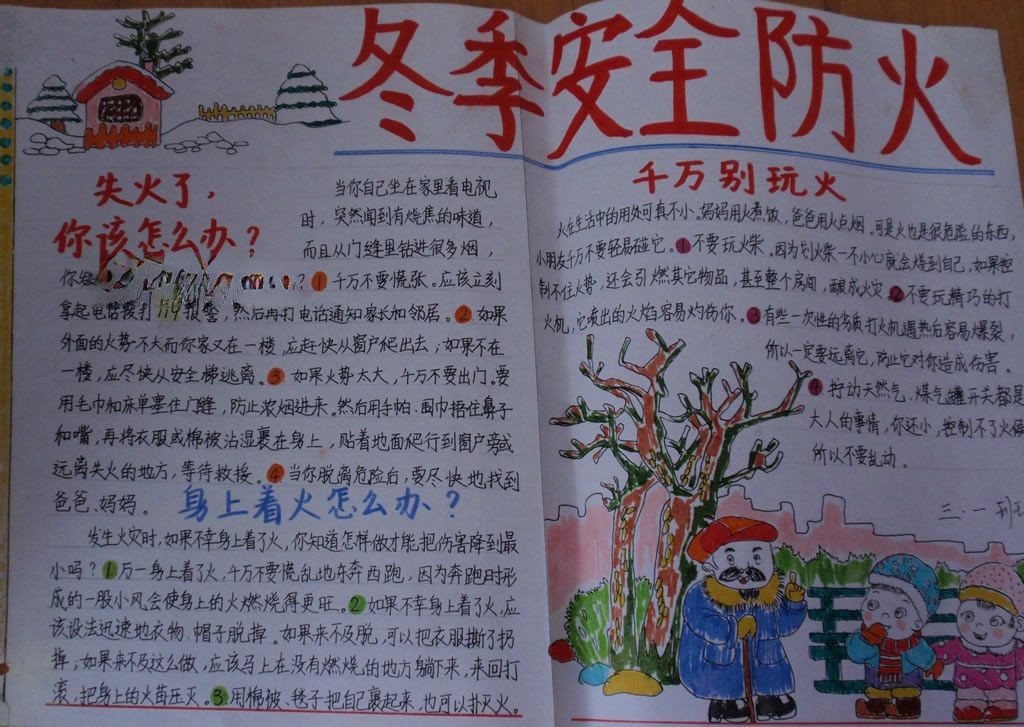 冬季安全防火
失火了，
你该怎么办？
当你自己坐在家里看电视
时，突然闻到有烧焦的味道，
而且从门缝里钻进很多烟，
你 ？1千万不要慌张。应该立刻
拿起电话拨打119报警，然后再打电话通知家长和邻居。2如果
外面的火势不大而你家又在一楼，应赶快从窗户爬出去；如果不在
一楼，应尽快从安全梯逃离。3如果火势太大，千万不要出门。要
用毛巾和床单塞住门缝，防止浓烟进来。然后用手帕、围巾捂住鼻子
和嘴，再将衣服或棉被沾湿裹在身上，贴着地面爬行到窗户旁或
远离失火的地方，等待救援。4当你脱离危险后，要尽快地找到
爸爸、妈妈。
身上着火怎么办？
发生火灾时，如果不幸身上着了火，你知道怎样做才能把伤害降到最
小吗？1万一身上着了火，千万不要慌乱地东奔西跑，因为奔跑时形
成的一股小风会使身上的火燃烧得更旺。2如果不幸身上着了火，应
该设法迅速地衣物、帽子脱掉。如果来不及脱，可以把衣服撕了扔
掉；如果来不及这么做，应该马上在没有燃烧的地方躺下来，来回打
滚，把身上的火苗压灭。3用棉被、毯子把自己裹起来，也可以扑灭火。
千万别玩火
火在生活中的用处可真不小。妈妈用火煮饭，爸爸用火点烟。可是火也是很危险的东西，
小朋友千万不要轻易碰它。1不要玩火柴。因为划火柴一不小心就会烧到自己，如果控
制不住火势，还会引燃其它物品，甚至整个房间，酿成火灾2不要玩精巧的打
火机，它喷出的火焰容易灼伤你。3有些一次性的劣质打火机遇热后容易爆裂，
所以一定要远离它，防止它对你造成伤害。
4拧动天然气、煤气罐开关都是
大人的事情，你还小，控制不了火候
所以不要乱动。
三·一